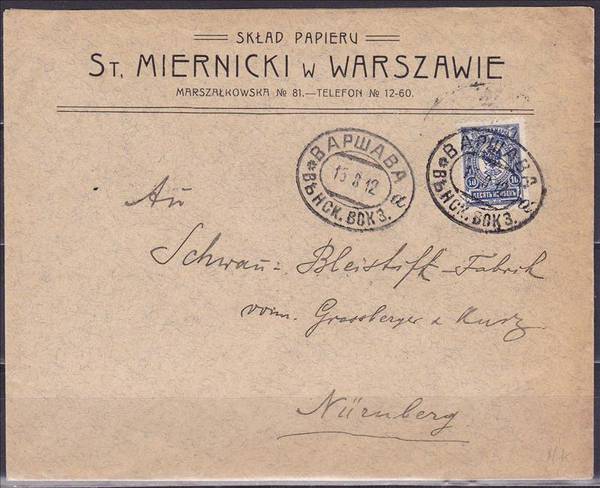 SKŁAD PAPIERU
ST. MIERNICKI W WARSZAWIE
MARSZAŁKOWSKA № 81.—TELEFON № 12-60.
ВАРШАВА
13 8 12
ВѢНСК. ВОКЗ.
ВАРШАВА
ВѢНСК. ВОКЗ.
10 10
ДЕСЯТЬ КОПѢЕКЪ
An
Schwan-Bleistift-Fabrik
vorm. Grossberger & Kurz
Nürnberg